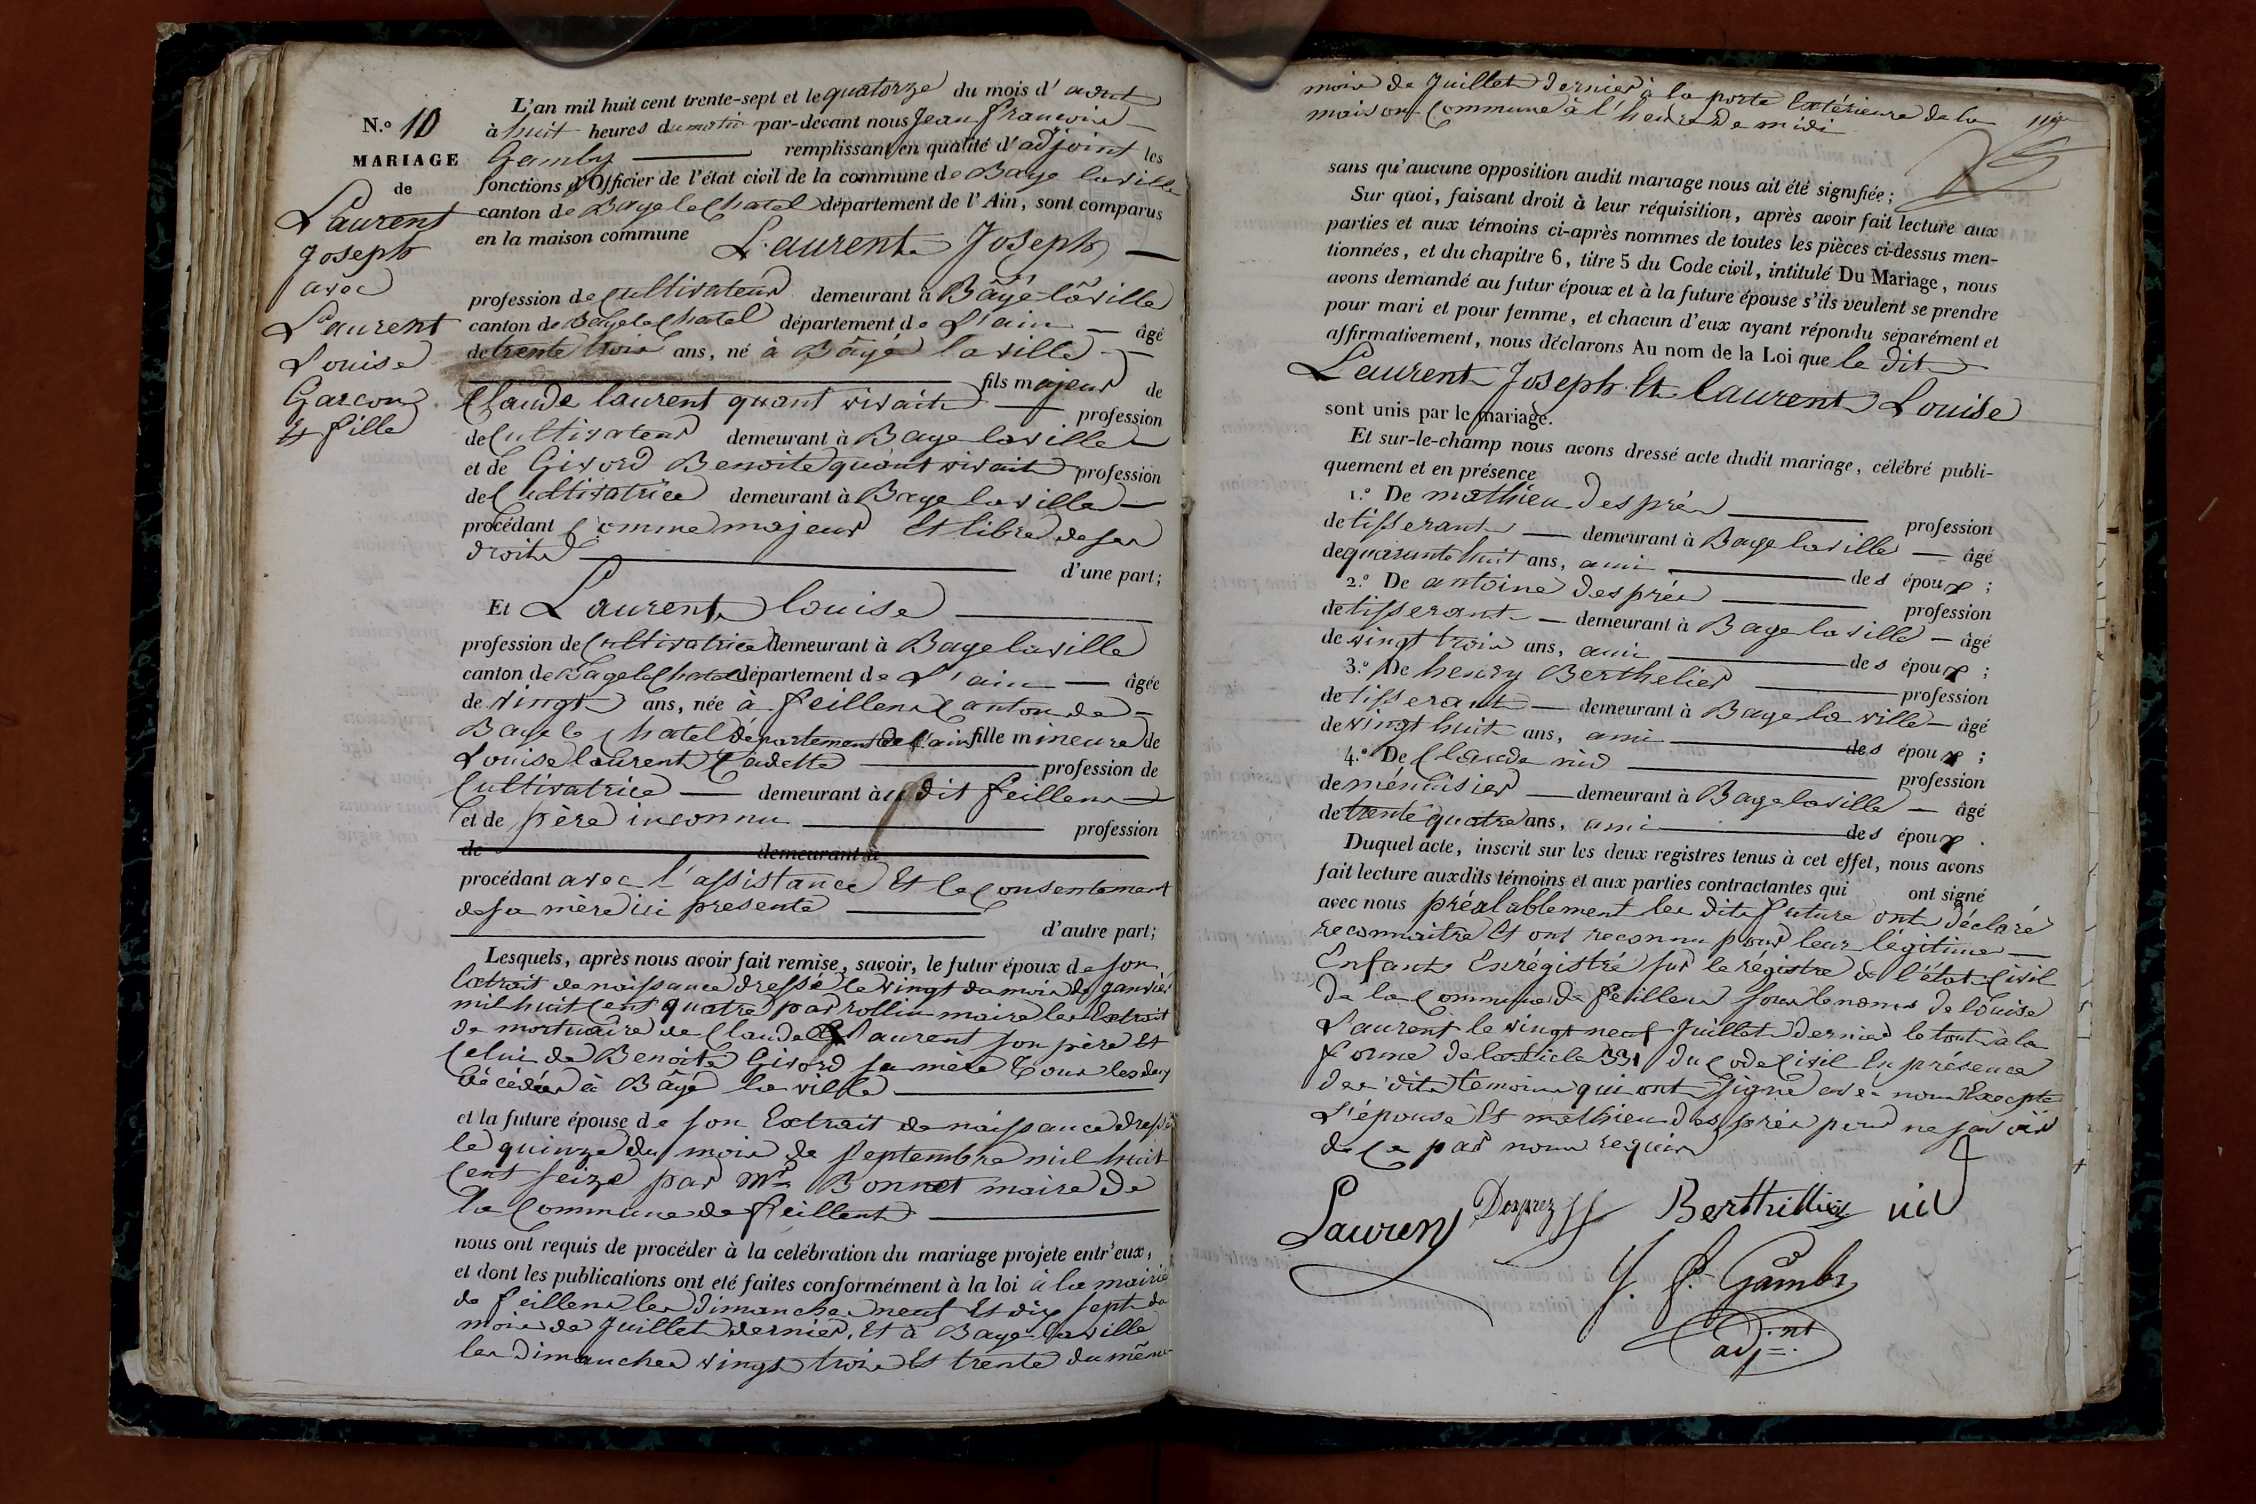 N.o 10
MARIAGE
de
Laurent
Joseph
avec
Laurent
Louise
Garcon
et fille
L'an mil huit cent trente-sept et le quatorze du mois d'aout
à huit heures du matin par-devant nous Jean françois
Gamby remplissant en qualité d'adjoint les
fonctions d'Officier de l'état civil de la commune de Bage laville
canton de Bage le Chatel département de l'Ain, sont comparus
en la maison commune Laurent Joseph
profession de Cultivateur demeurant à Bâgé laville
canton de Bage le Chatel département de L'ain âgé
de trente trois ans, né à Bâgé la ville
fils majeur de
Claude laurent quant vivait profession
de Cultivateur demeurant à Baye laville
et de Givord Benoite quant vivait profession
de Cultivatrice demeurant à Baye laville
procédant Comme majeur Et libre de ses
droits d'une part;
Et Laurent louise
profession de Cultivatrice demeurant à Bage laville
canton de Bage le Chatel département de L'ain âgée
de vingt ans, née à feillens Canton de
Bage le Chatel département de l'ain fille mineure de
Louise laurent Cadette profession de
Cultivatrice demeurant à dit feillens
et de père inconnu profession
de demeurant à
procédant avec l'assistance Et le Consentement
de sa mère ici presente
d'autre part;
Lesquels, après nous avoir fait remise, savoir, le futur époux de son
Extrait de naissance dressé le vingt du mois de janvier
mil huit Cent quatre par rollin maire les Extrait
de mortuaire de Claude Laurent son père Et
Celui de Benoite Givord sa mère Tous les deux
décédés à Bâgé la ville
et la future épouse de son Extrait de naissance dressé
le quinze du mois de Septembre mil huit
Cent seize par Mr Bonnet maire de
la Commune de feillent
nous ont requis de procéder à la celébration du mariage projeté entr'eux,
et dont les publications ont eté faites conformément à la loi à la mairie
de feillens les dimanches neuf Et dix sept du
mois de Juillet dernier, Et à Baye laville
les dimanches vingt trois Et trente du même
mois de Juillet dernier à la porte Extérieure de la
maison Commune à l'heure de midi
sans qu'aucune opposition audit mariage nous ait été signifiée;
Sur quoi, faisant droit à leur réquisition, après avoir fait lecture aux
parties et aux témoins ci-après nommes de toutes les pièces ci-dessus men-
tionnées, et du chapitre 6, titre 5 du Code civil, intitulé Du Mariage, nous
avons demandé au futur époux et à la future épouse s'ils veulent se prendre
pour mari et pour femme, et chacun d'eux ayant répondu séparément et
affirmativement, nous déclarons Au nom de la Loi que le dit
Laurent Joseph Et laurent Louise
sont unis par le mariage.
Et sur-le-champ nous avons dressé acte dudit mariage, célébré publi-
quement et en présence
1.o De mathieu després profession
de tisserant demeurant à Baye laville âgé
de quarante huit ans, ami des époux;
2.o De antoine després profession
de tisserant demeurant à Baye laville âgé
de vingt trois ans, ami des époux;
3.o De henry Berthelier profession
de tisserant demeurant à Baye la ville âgé
de vingt huit ans, ami des époux;
4.o De Claude nid profession
de ménuisier demeurant à Baye laville âgé
de trente quatre ans, ami des époux.
Duquel acte, inscrit sur les deux registres tenus à cet effet, nous avons
fait lecture auxdits témoins et aux parties contractantes qui ont signé
avec nous préalablement les dits future ont déclaré
reconnaitre Et ont reconnu pour leur légitime
Enfants Enrégistré sur le régistre de l'état Civil
de la Commune de feillens sous le noms de louise
Laurent le vingt neuf Juillet dernier le tout à la
forme de larticle 331 du Code Civil En présence
des dits témoins qui ont signé avec nous Excepté
L'épouse Et mathieu després pour ne savoir
de Ce par nous requis
Laurent Desprez Berthillier nid
J. f. Gamby
adj.nt